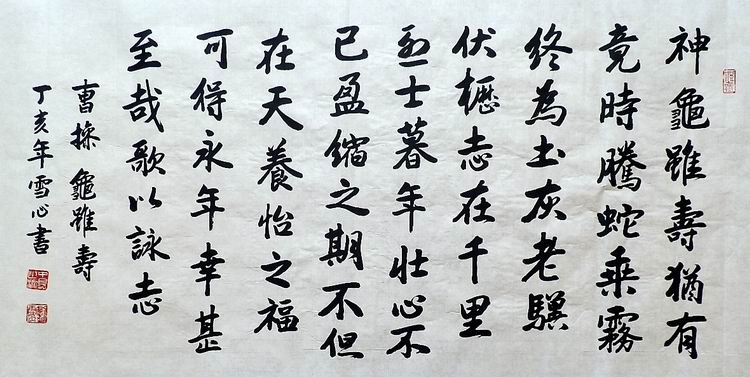 神龜雖壽猶有
竟時騰蛇乘霧
終為土灰老驥
伏櫪志在千里
烈士暮年壯心不
已盈縮之期不但
在天養怡之福
可得永年幸甚
至哉歌以詠志
曹操 龜雖壽
丁亥年雪心書